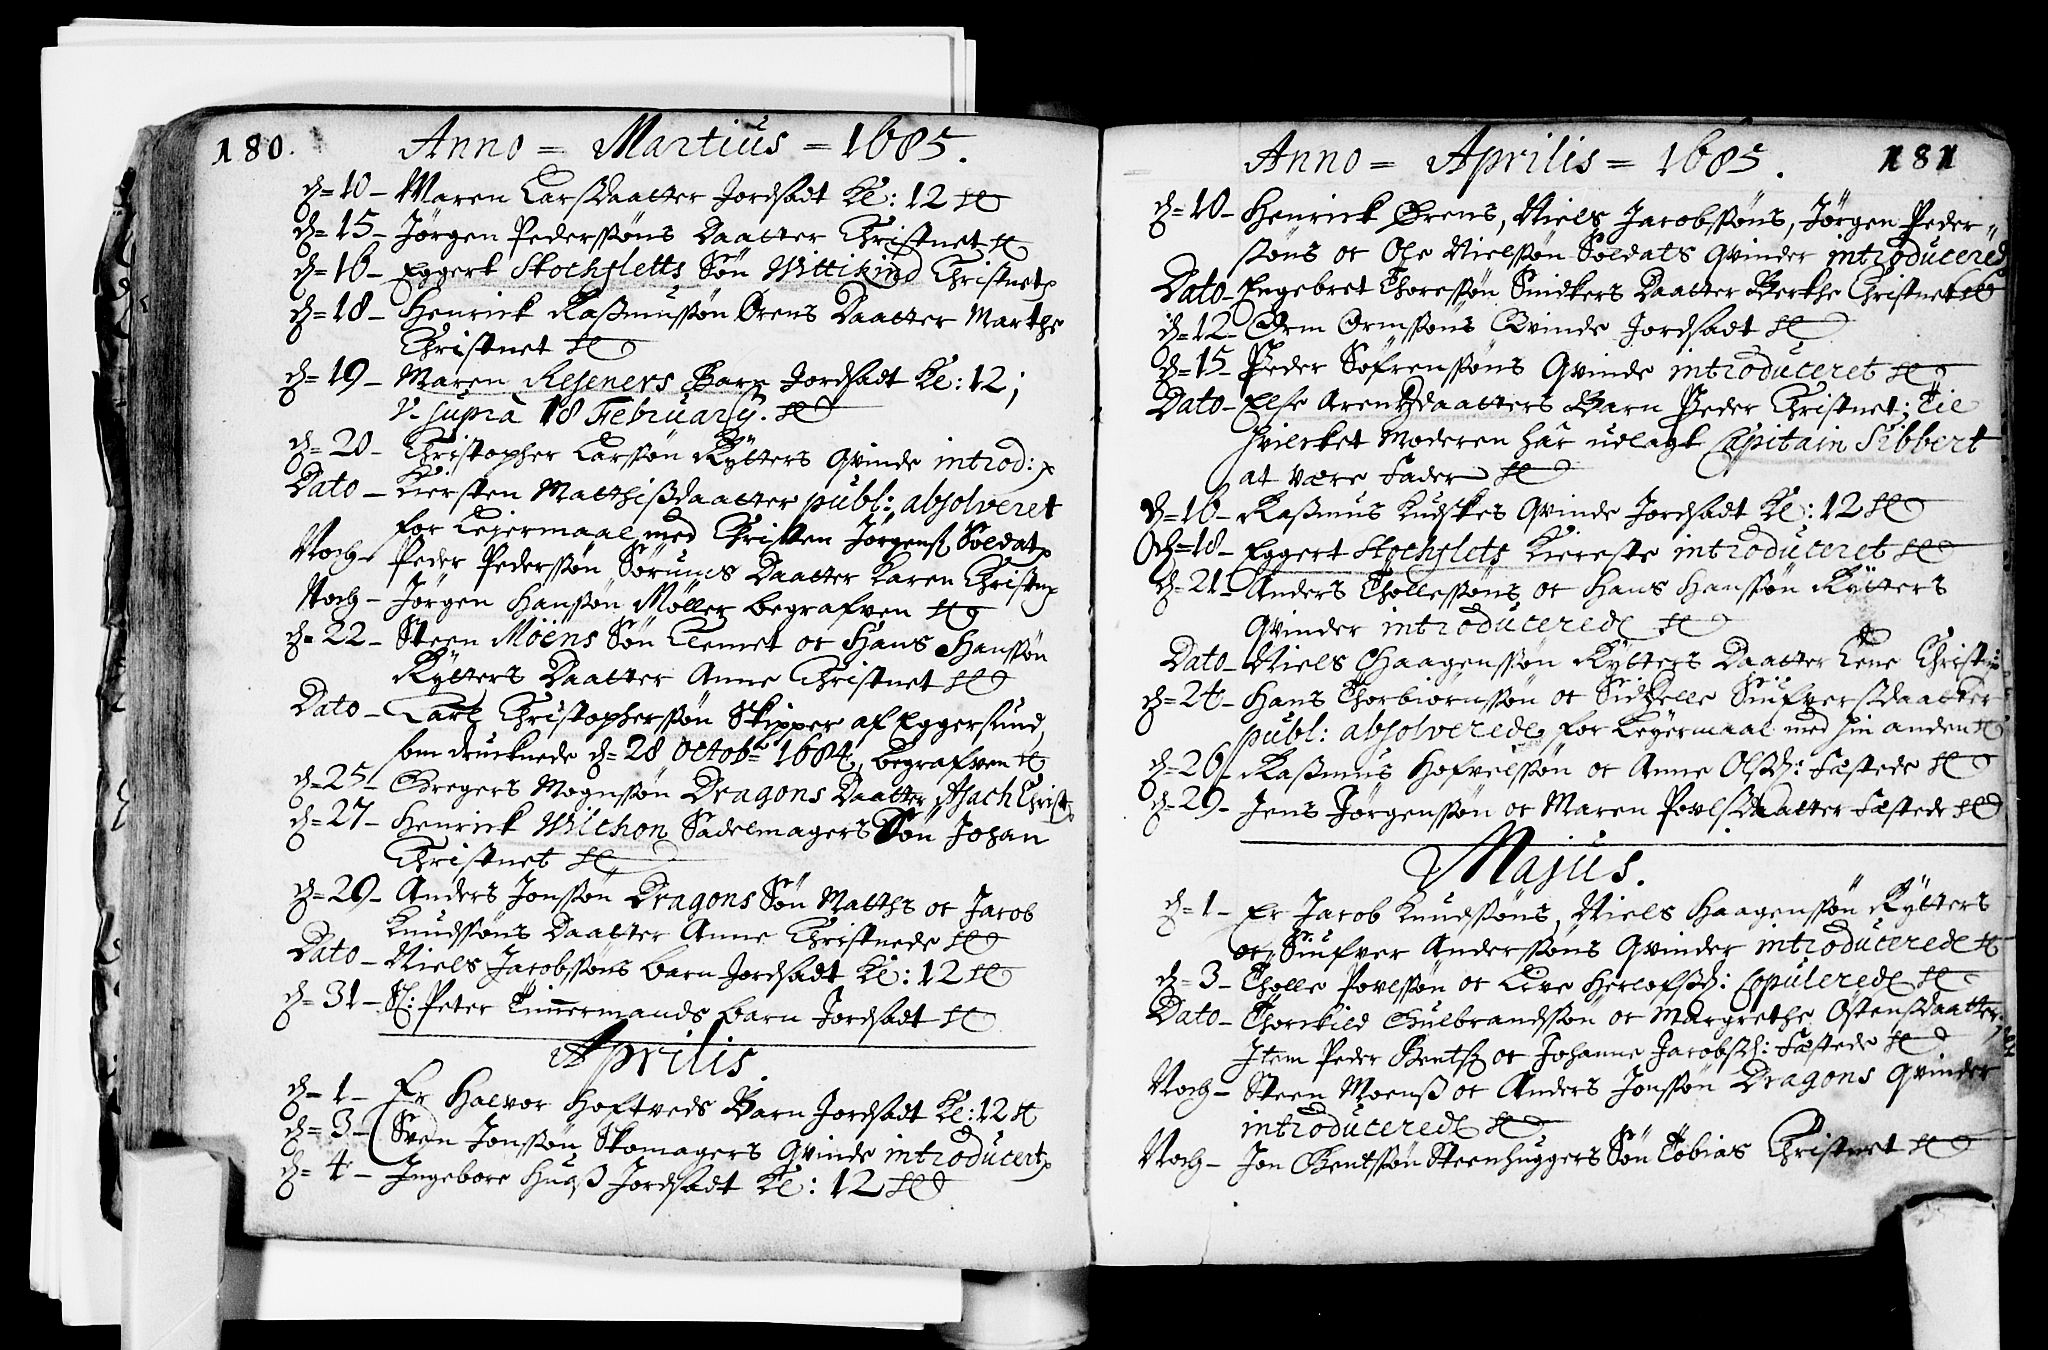 180.
Anno = Martius = 1685.
d= 10 - Maren Larsdaatter Jordsadt Kl: 12
d= 15 - Jørgen Pederssøns Daatter Christnet
d= 16 - Eggert Stochfletts Søn Wittikind Christnet
d= 18 - Henrick Rasmussøn Ørens Daatter Marthe
Christnet
d= 19 - Maren Reseners Barn Jordsadt Kl: 12;
v. supra 18 February.
d= 20 - Christopher Larssøn Rytters Qvinde introd:
Dato - Kiersten Matthisdaatter publ: absolveret
for Lejermaal med Christen Jørgens Soldat
Noch - Peder Pederssøn Sørums Daatter Karen Christn
Noch - Jørgen Hanssøn Møller begrafven
d= 22 - Steen Möens Søn Clemet oc Hans Hanssøn
Rytters Daatter Anne Christnet
Dato - Carl Christopherssøn Skipper af Eggersund,
som drucknede d= 28 Octob: 1684, begrafven
d= 25 - Gregers Mognssøn Dragons Daatter Christ
d= 27 - Henrick Wilchon Sadelmagers Søn Johan
Christnet
d= 29 - Anders Jonssøn Dragons Søn Matths oc Jacob
Knudssøns Daatter Anne Christnede
Dato - Niels Jacobssøns barn Jordsadt Kl: 12
d= 31 - Sl: Peter Timmermands barn Jordsadt
Aprilis.
d= 1 - Er Halvor Hoftveds Barn Jordsadt Kl: 12
d= 3 - Sven Jonssøn Skomagers Qvinde introducert
d= 4 - Ingebore Hues Jordsadt Kl: 12
Anno = Aprilis = 1685.
181
d= 10 - Henrick Ørens, Niels Jacobssøns, Jørgen Peder=
ssøns oc Ole Nielssøn Soldats Qvinder introducered
Dato - Engebret Thoressøn Snidkers Daatter Berthe Christnet
d= 12 - Orm Ormssøns Qvinde Jordsadt
d= 15 - Peder Søfrenssøns Qvinde introduceret
Dato - Else Arentzdaatters Barn Peder Christnet; til
hvilcket Moderen har udlagt Capitain Sibbert
at være Fader
d= 16 - Rasmus Kudskes Qvinde Jordsadt Kl: 12
d= 18 - Eggert Stochflets Kiereste introduceret
d= 21 - Anders Thollessøns oc Hans Hanssøn Rytters
Qvinder introducerede
Dato - Niels Haagenssøn Rytters Daatter Lene Christn
d= 24 - Hans Thorbiørnssøn oc Sidzelle Siufversdaatter
publ: absolverede for Leyermaal med hin anden
d= 26 - Rasmus Hofvelssøn oc Anne Olsd: Fæstede
d= 29 - Jens Jørgenssøn oc Maren Povlsdaatter Fæstede
Majus.
d= 1 - Er Jacob Knudssøns, Niels Haagenssøn Rytters
oc Siufver Anderssøns Qvinder introducerede
d= 3 - Tholle Povlssøn oc Live Herlofsd: Copulerede
Dato - Thorkild Gulbrandssøn oc Margrethe Østensdaatter,
Item Peder Bents oc Johanne Jacobsd: Fæstede
Noch - Steen Moens oc Anders Jonssøn Dragons Qvinder
introducerede
Noch - Jon Bentssøn Steenhuggers Søn Tobias Christnet